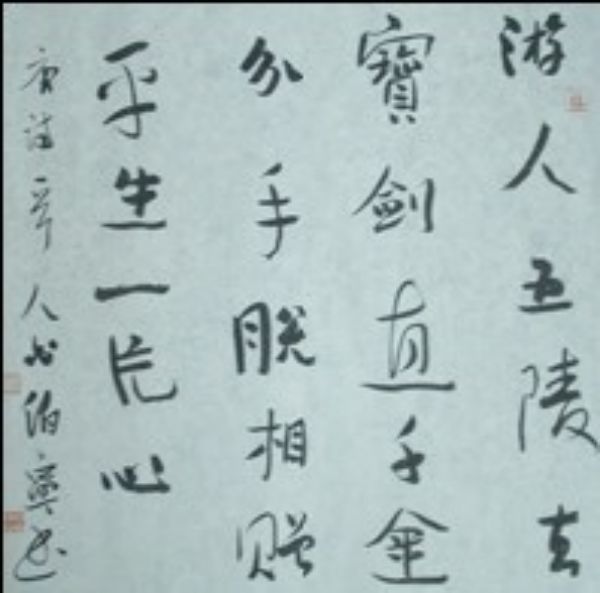 游人五陵去
寶劍直千金
分手脱相赠
平生一片心
唐诗一首